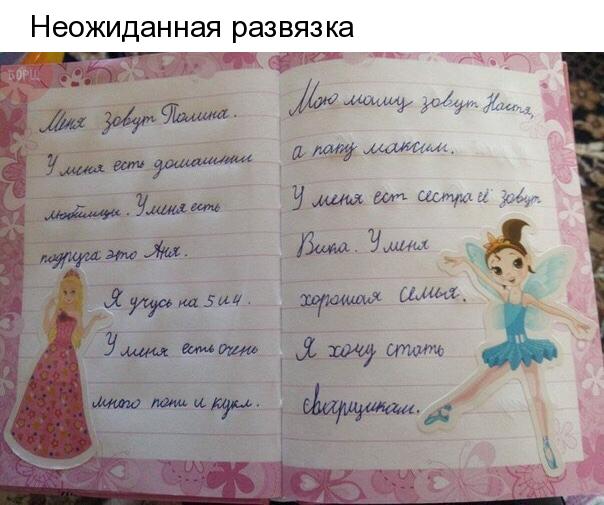 Неожиданная развязка
БОРЩ
Меня зовут Полина.
У меня есть домашнии
любимци. У меня есть
подруга это Аня.
Я учусь на 5 и 4.
У меня есть очень
много пони и кукл.
Мою маму зовут Настя,
а папу максим.
У меня ест сестра её зовут
Вика. У меня
хорошая семья.
Я хочу стать
сварщикам.